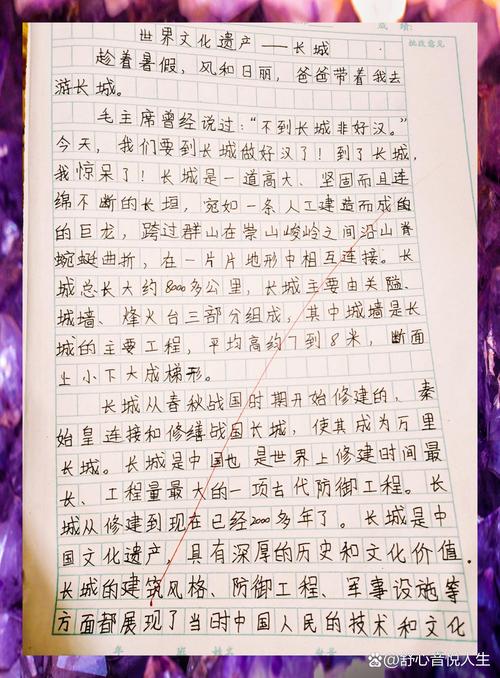 成绩:
批改意见
世界文化遗产——长城
趁着暑假，风和日丽，爸爸带着我去
游长城。
毛主席曾经说过：“不到长城非好汉。”
今天，我们要到长城做好汉了！到了长城，
我惊呆了！长城是一道高大、坚固而且连
绵不断的长垣，宛如一条人工建造而成的
的巨龙，跨过群山在崇山峻岭之间沿山脊
蜿蜒曲折，在一片片地形中相互连接。长
城总长大约8000多公里，长城主要由关隘、
城墙、烽火台三部分组成，其中城墙是长
城的主要工程，平均高约7到8米，断面
上小下大成梯形。
长城从春秋战国时期开始修建的，秦
始皇连接和修缮战国长城，使其成为万里
长城。长城是中国也是世界上修建时间最
长、工程量最大的一项古代防御工程。长
城从修建到现在已经2000多年了。长城是中
国文化遗产，具有深厚的历史和文化价值。
长城的建筑风格、防御工程、军事设施等
方面都展现了当时中国人民的技术和文化
年 班 姓名
@舒心音悦人生